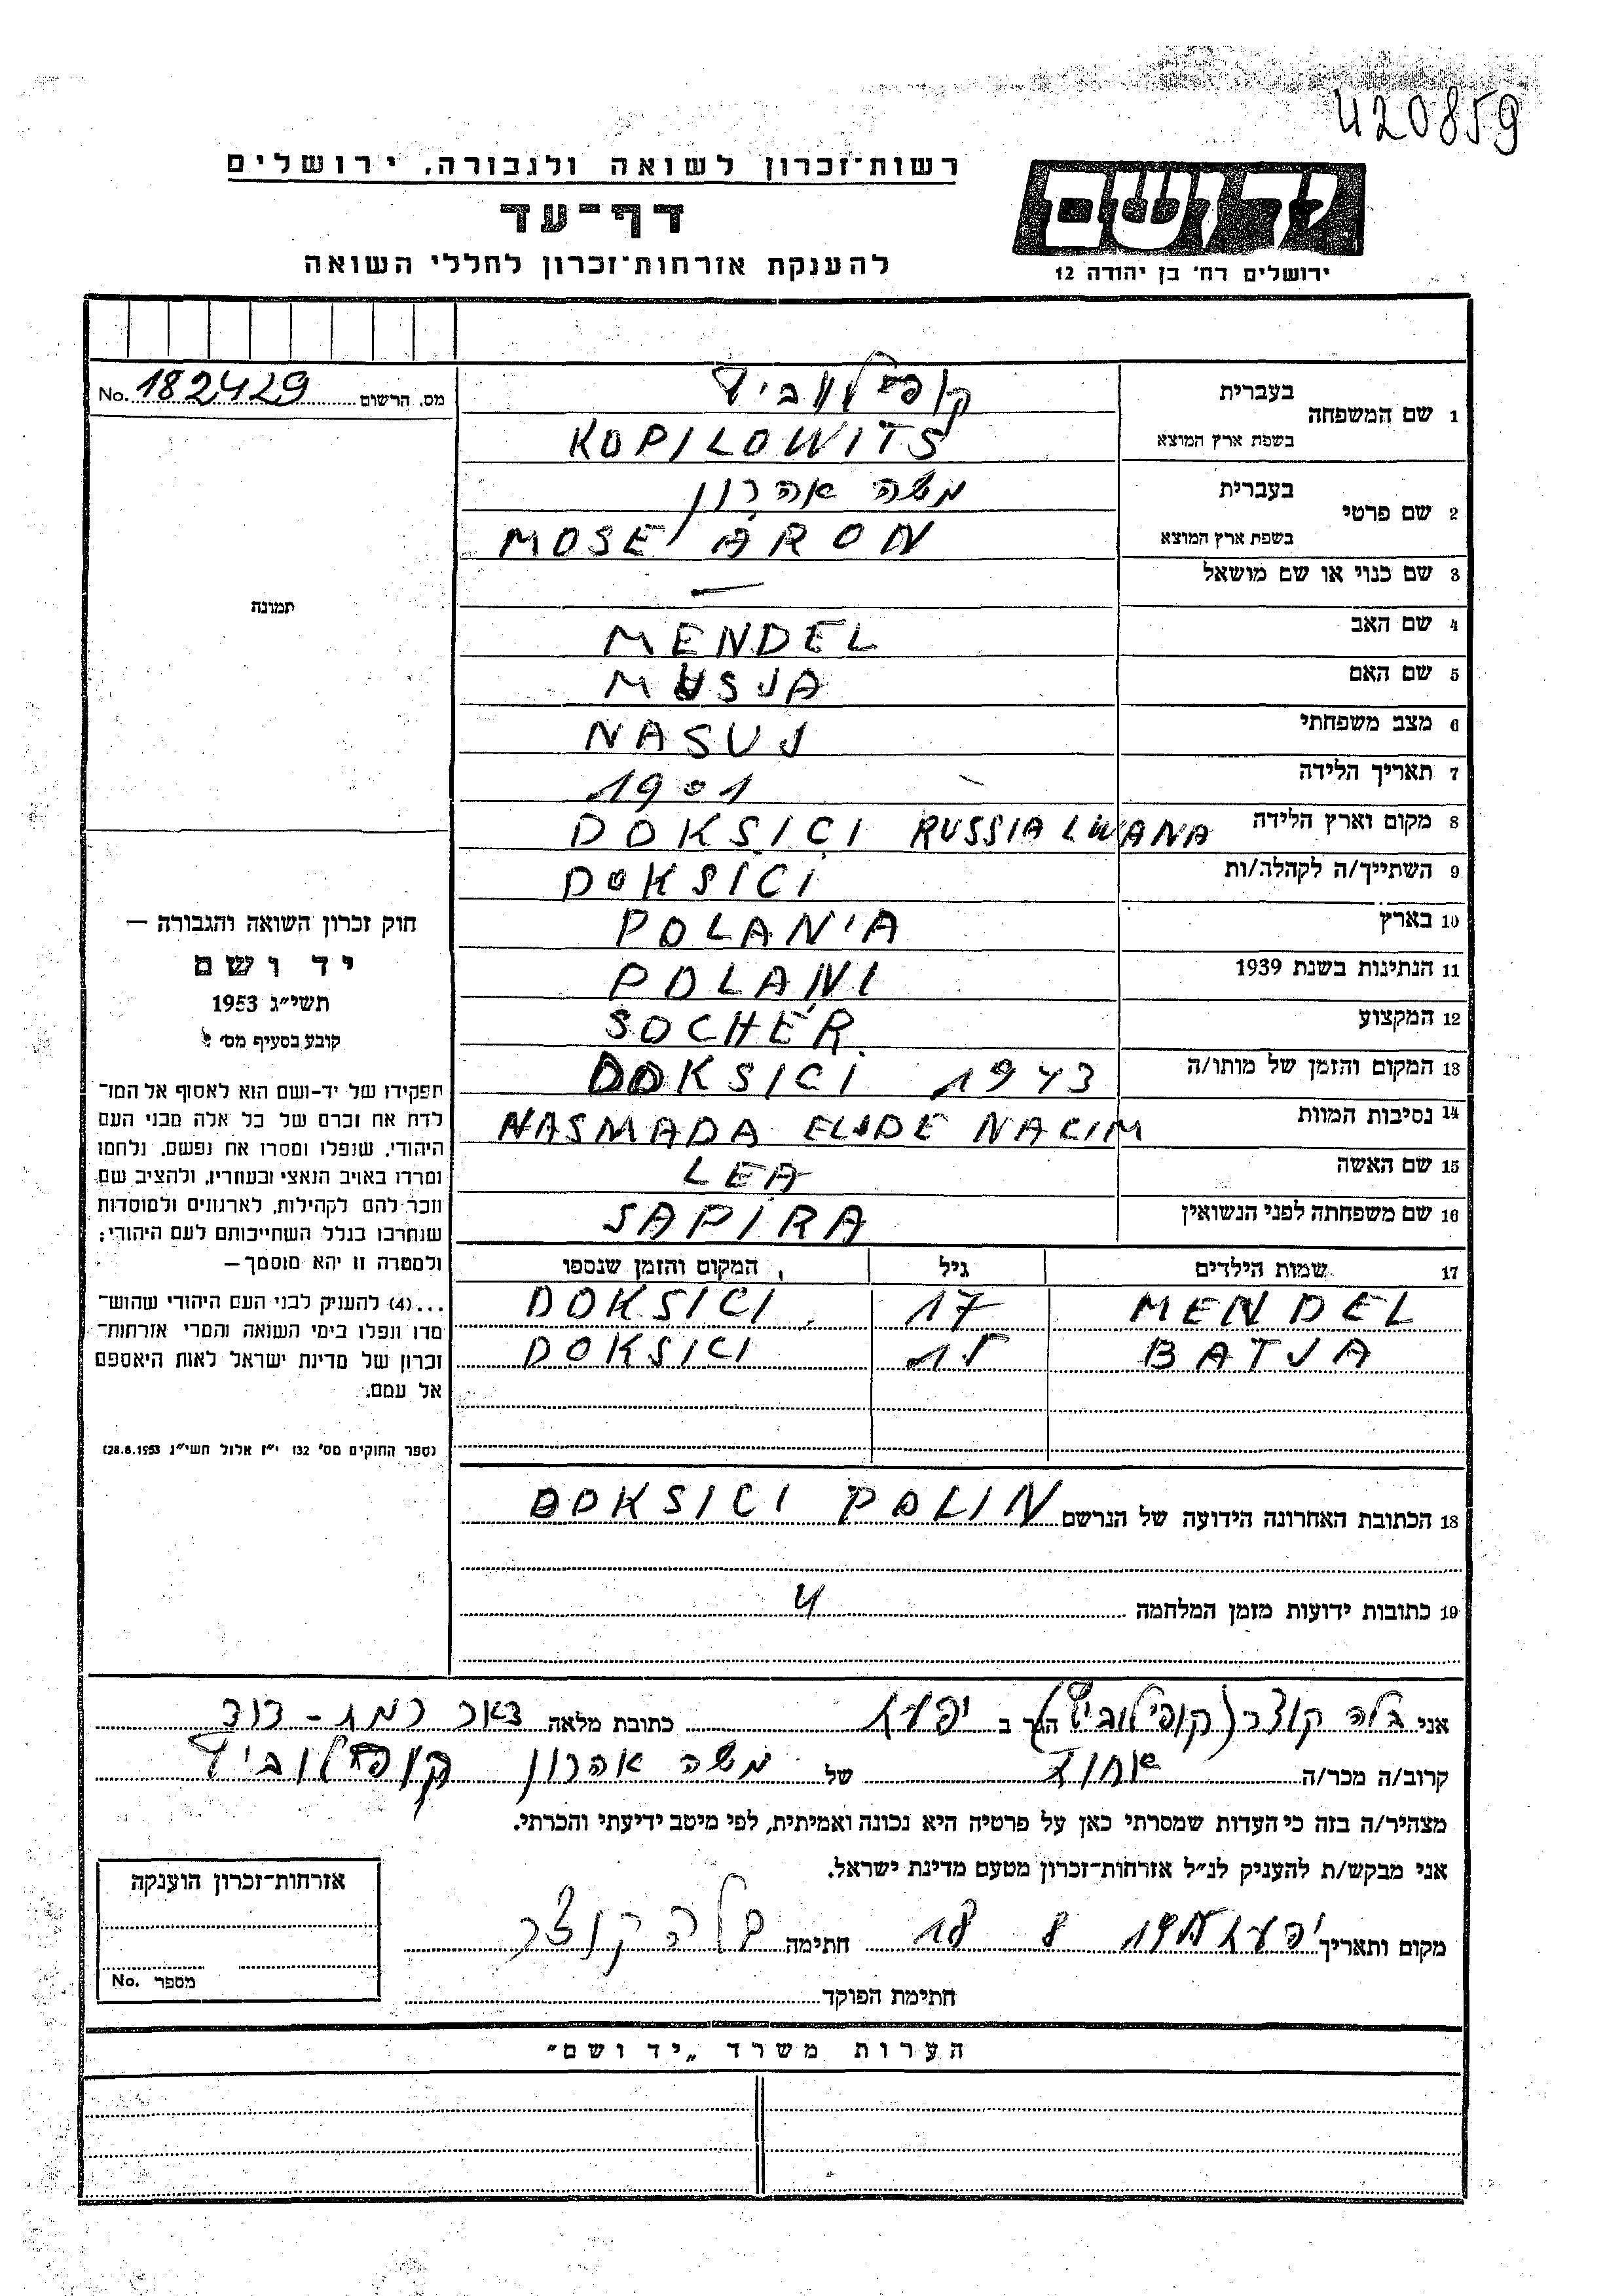 420859
רשות־זכרון לשואה ולגבורה, ירושלים
דף־עד
להענקת אזרחות־זכרון לחללי השואה
יד ושם
ירושלים רח' בן יהודה 12
מס. הרשום No. 182429
תמונה
1 שם המשפחה
בעברית קופילוביץ
בשפת ארץ המוצא KOPILOWITS
2 שם פרטי
בעברית משה אהרון
בשפת ארץ המוצא MOSE ARON
3 שם כנוי או שם מושאל —
4 שם האב MENDEL
5 שם האם MUSJA
6 מצב משפחתי NASUJ
7 תאריך הלידה 1901
8 מקום וארץ הלידה DOKSICI RUSSIA LWANA
9 השתייך/ה לקהלה/ות DOKSICI
10 בארץ POLANIA
11 הנתינות בשנת 1939 POLANI
12 המקצוע SOCHER
13 המקום והזמן של מותו/ה DOKSICI 1943
14 נסיבות המוות NASMADA NACIM
15 שם האשה LEA
16 שם משפחתה לפני הנשואין SAPIRA
17 שמות הילדים גיל המקום והזמן שנספו
MENDEL 17 DOKSICI
BATJA 15 DOKSICI
18 הכתובת האחרונה הידועה של הנרשם DOKSICI POLIN
19 כתובות ידועות מזמן המלחמה 4
חוק זכרון השואה והגבורה —
יד ושם
תשי״ג 1953
קובע בסעיף מס'
תפקידו של יד-ושם הוא לאסוף אל המו־
לדת את זכרם של כל אלה מבני העם
היהודי, שנפלו ומסרו את נפשם, נלחמו
ומרדו באויב הנאצי ובעוזריו, ולהציב שם
וזכר להם לקהילות, לארגונים ולמוסדות
שנחרבו בגלל השתייכותם לעם היהודי;
ולמטרה זו יהא מוסמך —
...(4) להעניק לבני העם היהודי שהוש־
מדו ונפלו בימי השואה והמרי אזרחות־
זכרון של מדינת ישראל לאות היאספם
אל עמם.
(ספר החוקים מס' 132 י״ז אלול תשי״ג 28.8.1953)
אני בלה קוצר (קופילוביץ) הגר ב יפעת כתובת מלאה דאר רמת-דוד
קרוב/ה מכר/ה אחות של משה אהרון קופילוביץ
מצהיר/ה בזה כי העדות שמסרתי כאן על פרטיה היא נכונה ואמיתית, לפי מיטב ידיעתי והכרתי.
אני מבקש/ת להעניק לנ״ל אזרחות־זכרון מטעם מדינת ישראל.
מקום ותאריך יפעת 8 18 חתימה בלה קוצר
חתימת הפוקד
אזרחות־זכרון הוענקה
מספר No.
הערות משרד „יד ושם״